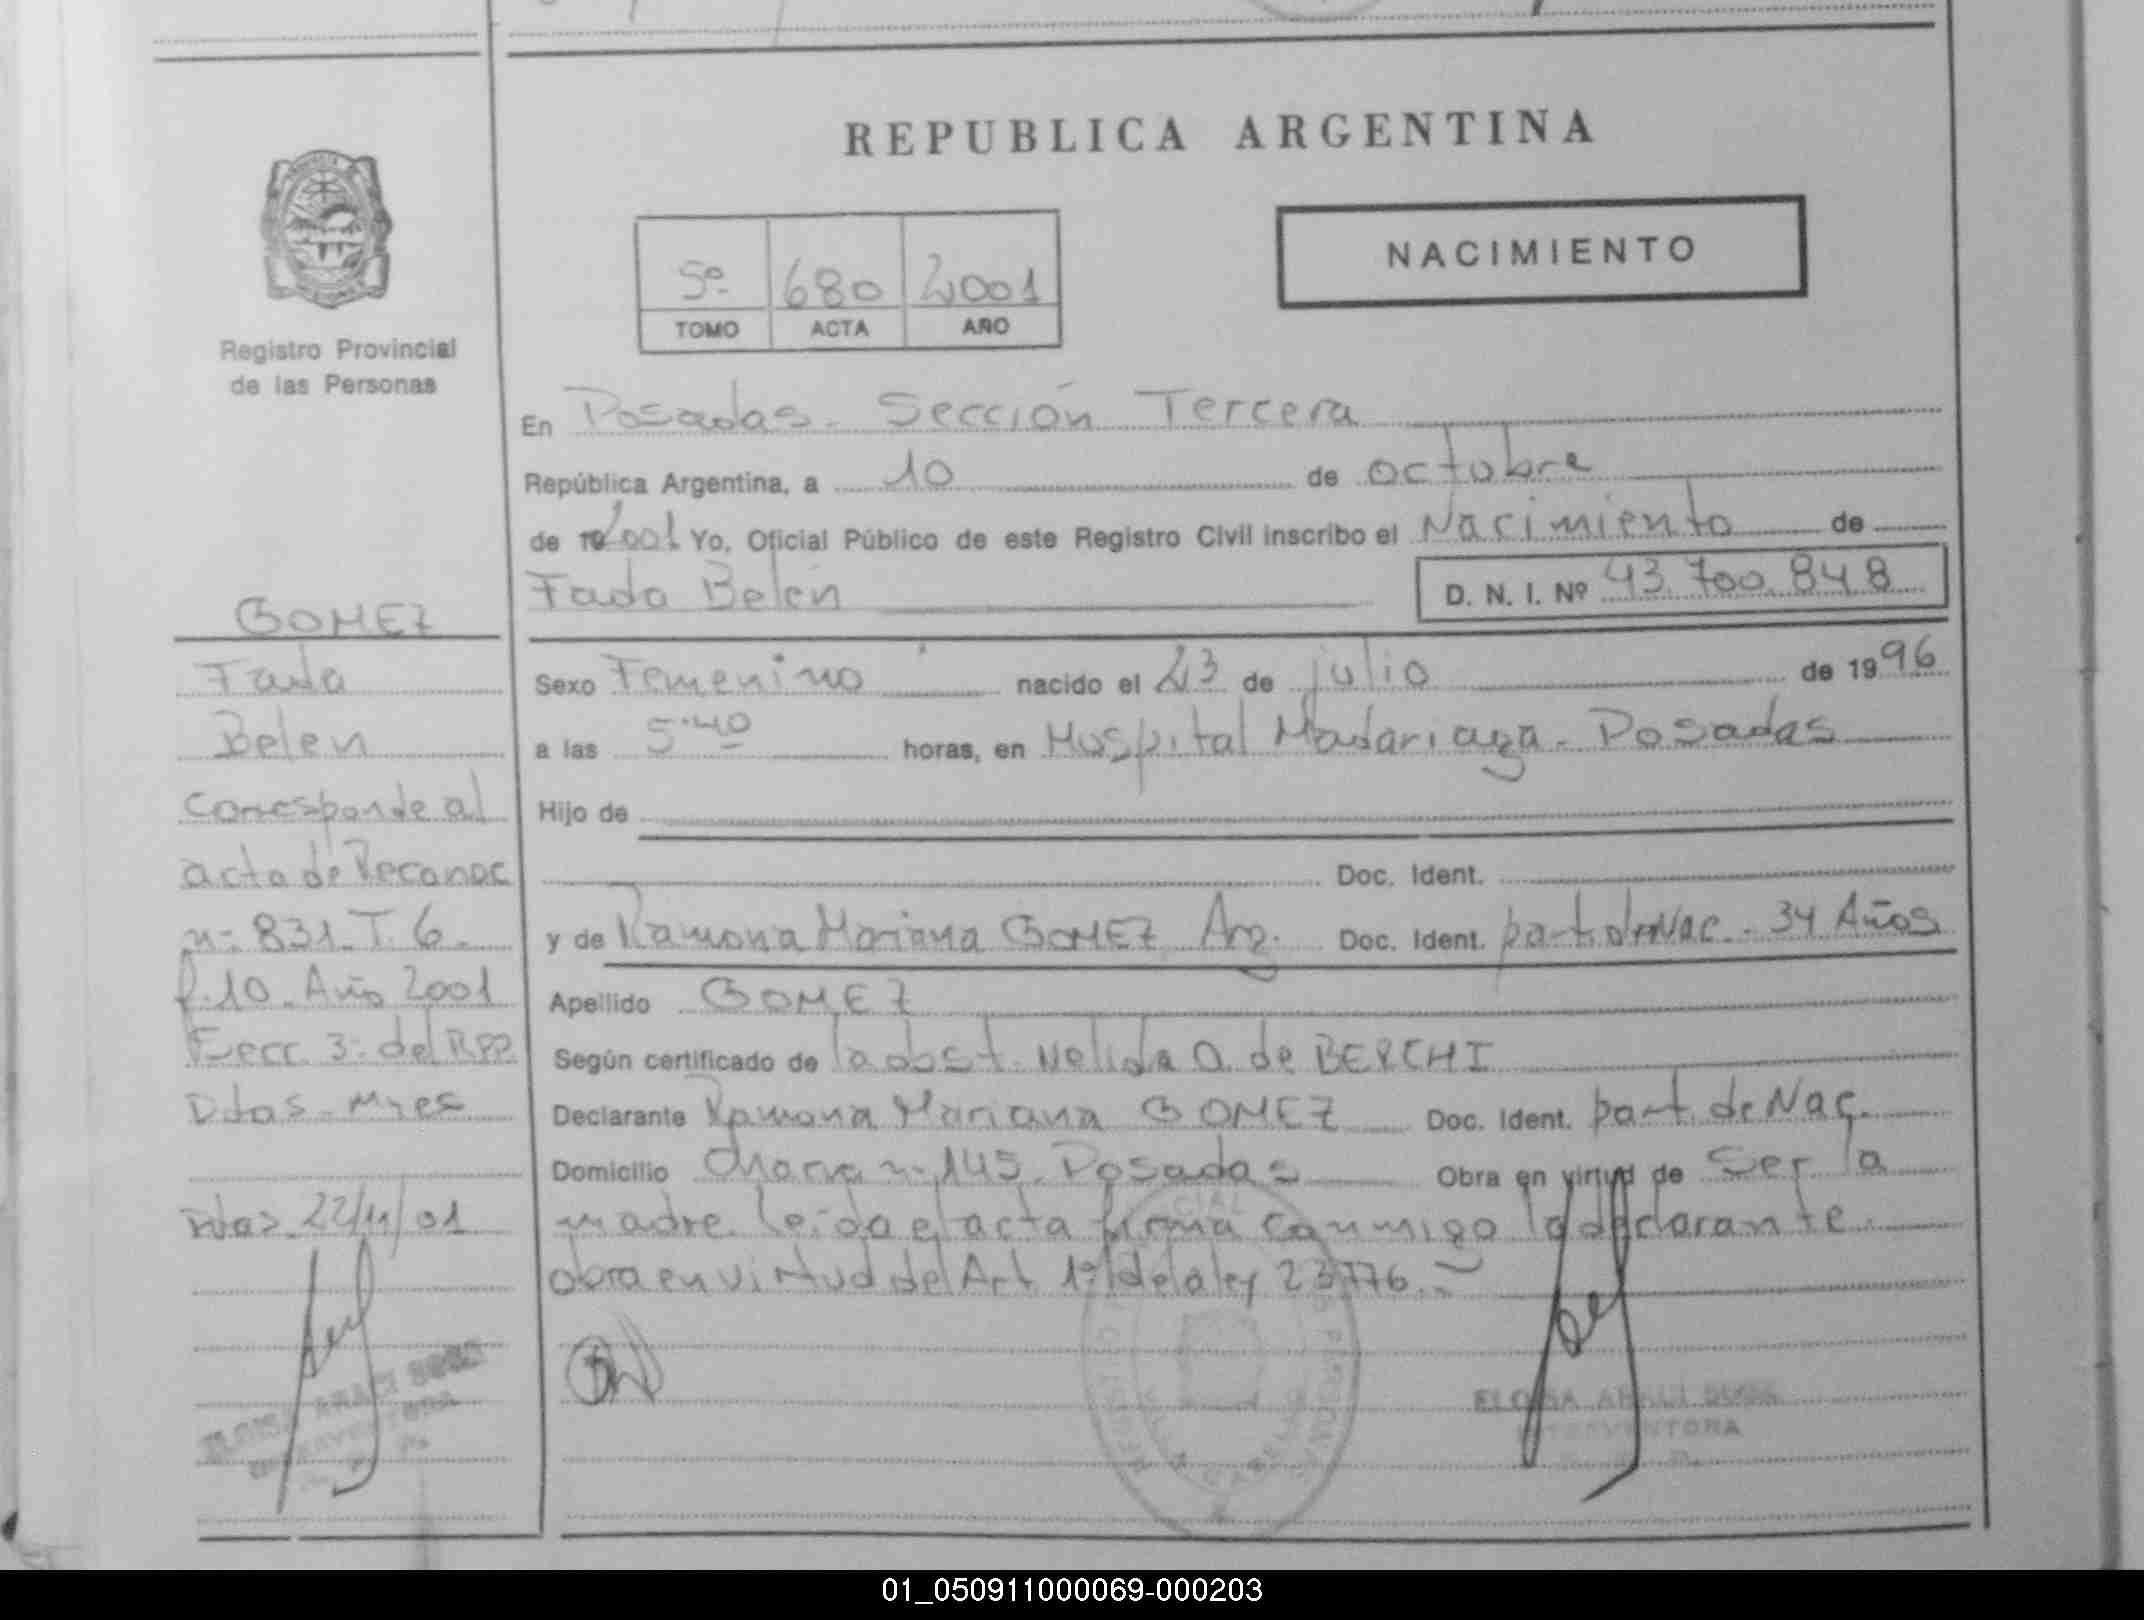 REPUBLICA ARGENTINA
NACIMIENTO
5º 680 2001
TOMO ACTA AÑO
Registro Provincial
de las Personas
En Posadas. Sección Tercera
República Argentina, a 10 de octubre
de 2001 Yo, Oficial Público de este Registro Civil inscribo el Nacimiento de
Fada Belén
D. N. I. Nº 43.700.848
Sexo Femenino nacido el 23 de julio de 1996
a las 5:40 horas, en Hospital Madariaga. Posadas
Hijo de
Doc. Ident.
y de Ramona Mariana GOMEZ Arg. Doc. Ident. part. de Nac. 34 Años
Apellido GOMEZ
Según certificado de la obst. Nelida O. de BERCHI
Declarante Ramona Mariana GOMEZ Doc. Ident. part. de Nac.
Domicilio n- 145. Posadas Obra en virtud de ser la
madre. leída el acta firma conmigo la declarante
obra en virtud del Art 1º de la ley 23776.-
GOMEZ
Fada
Belen
Corresponde al
acta de Reconoc
n- 831. T. 6.
f. 10. Año 2001
Secc. 3- del RPP
Pdas. Mnes
Pdas. 22/11/01
ELOISA ARACI
INTERVENTORA
ELOISA ARACI
INTERVENTORA
01_050911000069-000203